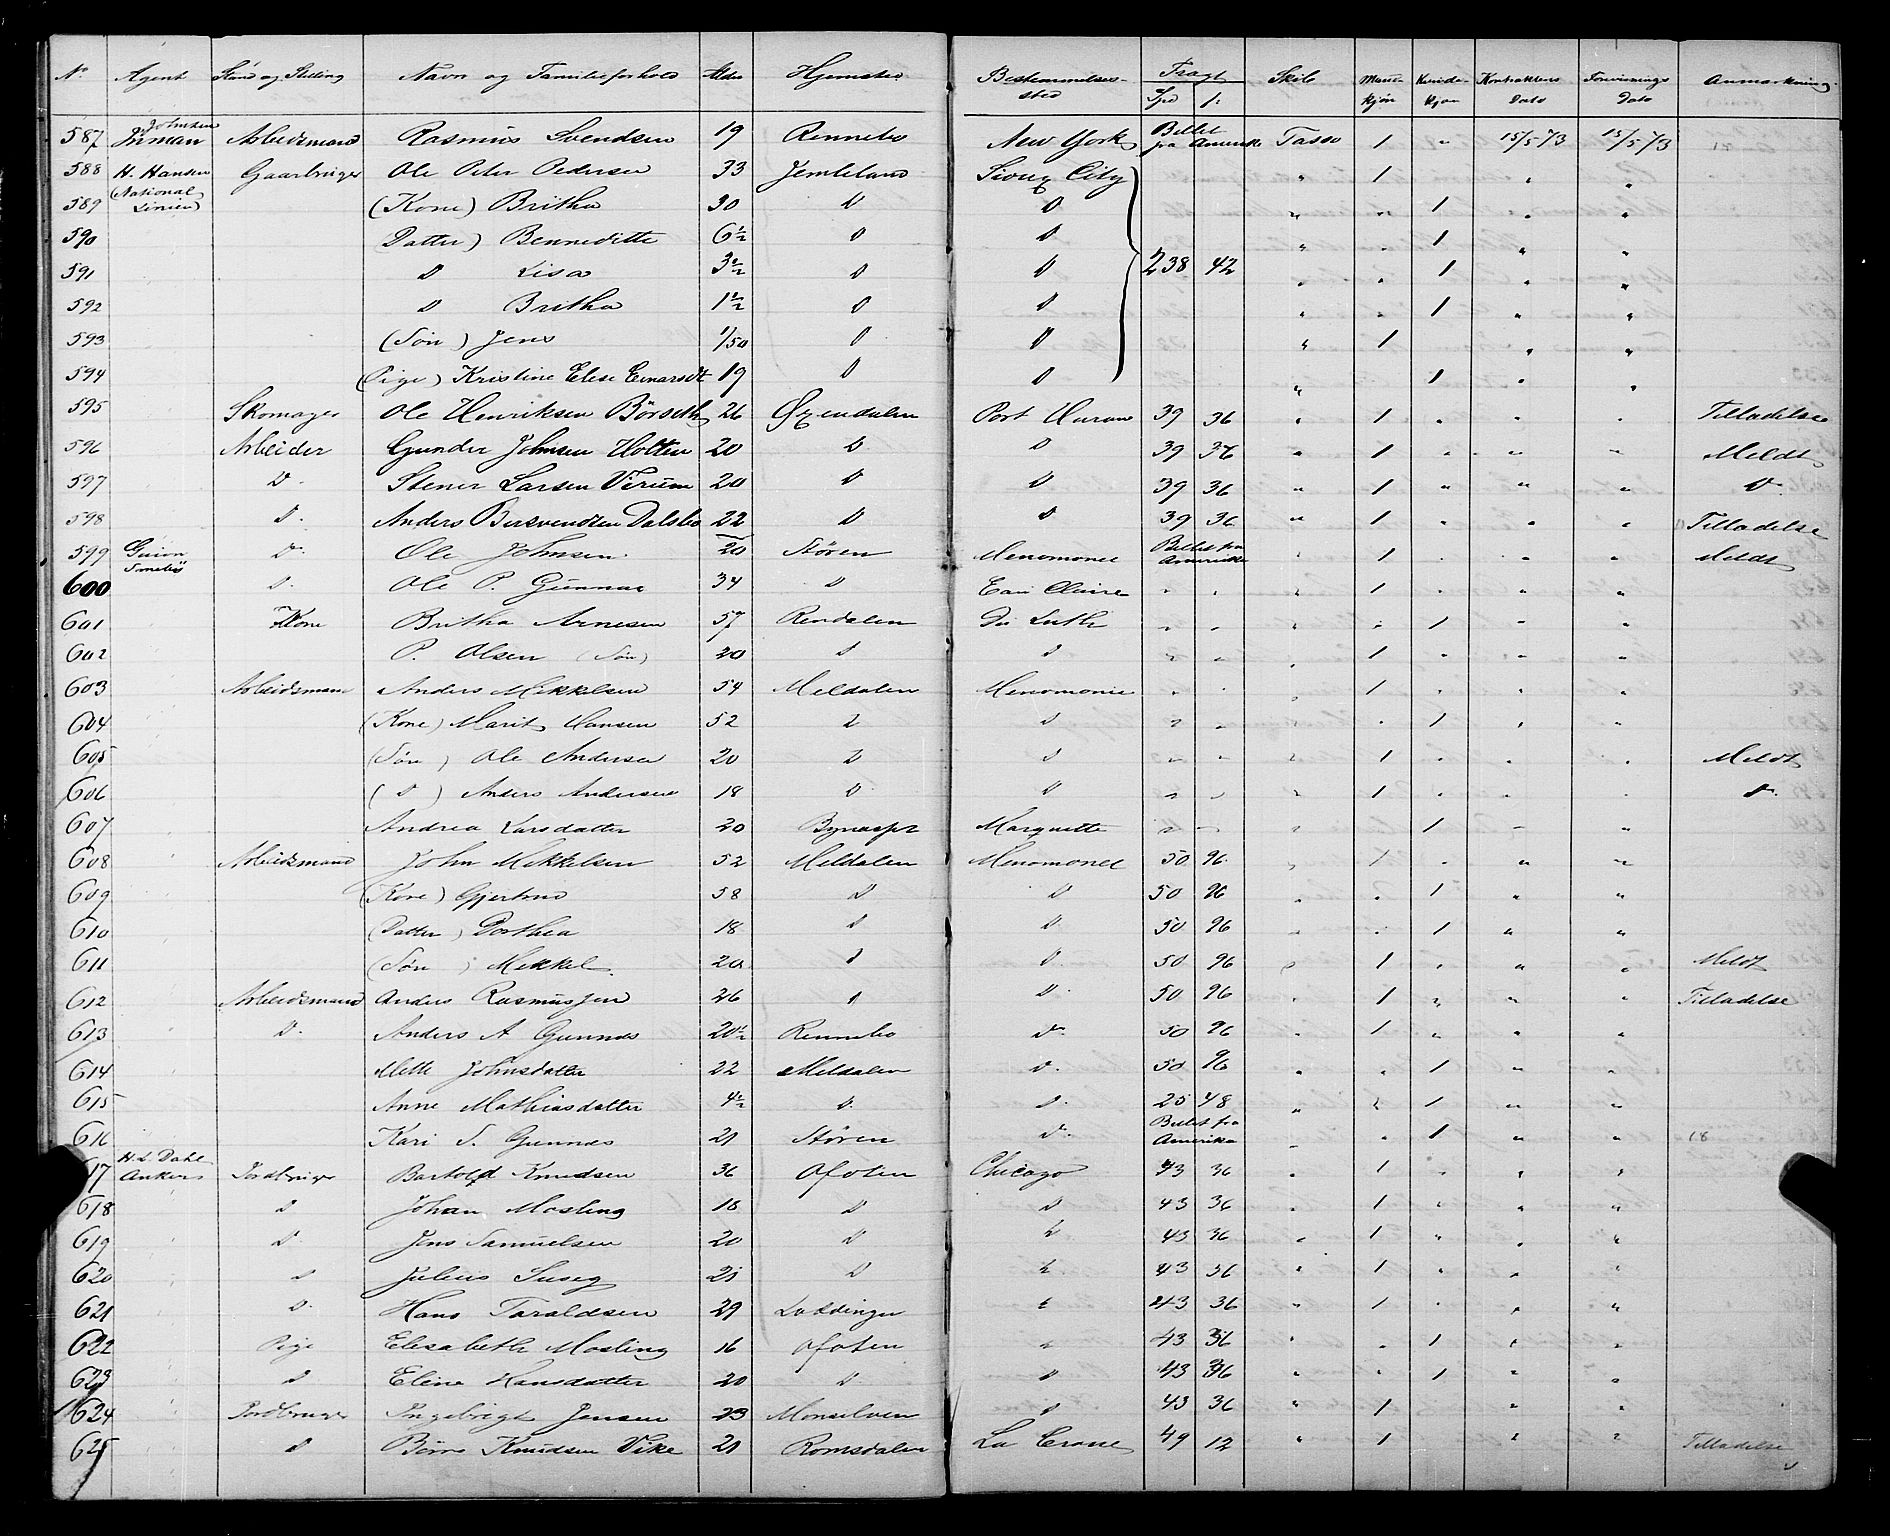 No Agent Stand og Stilling Navn og Familieforhold Alder Hjemsted Bestemmelsessted Fragt Spd ß: Skib Mandkjøn Kvindekjøn Kontraktens Dato Forevisnings Dato Anmærkning
587 Johnsen Inman Arbeidsmand Rasmus Svendsen 19 Rennebo New York Billet fra Amerika Tasso 1 " 15/5 73 15/5 73
588 H. Hansen (National Linien) Gaarbruger Ole Peter Pedersen 33 Jemteland Sioux City " 1 " "
589 (Kone) Britha 30 D D " " 1 " "
590 Datter) Benneditte 6½ D D " " 1 " "
591 D Lisa 3½ D D 238 42 " " 1 " "
592 D Britha 1½ D D " " 1 " "
593 (Søn) Jens 1/50 D D " 1 " "
594 (Pige) Kristine Elise Einarsdt 19 D D " 1 " "
595 Skomager Ole Henriksen Börseth 26 Øxendalen Port Huron 39 36 " 1 " " " Tilladelse
596 Arbeider Gunder Johnsen Hotten 20 D D 39 36 " 1 " " " Meldt
597 D. Stener Larsen Virum 20 D D 39 36 " 1 " " " D.
598 D. Anders Bersvendsen Dalsbo 22 D D 39 36 " 1 " " " Tilladelse
599 Guion D. Ole Johnsen 20 Støren Menomonee Billet fra Amerika " 1 " " " Meldt
600 D. Ole P. Gunnar 34 D Eau Claire " " " 1 " " "
601 Kone Britha Arnesen 57 Rendalen Du Luth " " " " 1 " "
602 P. Olsen (Søn) 20 D D " " " 1 " " "
603 Arbeidsmand Anders Mikkelsen 54 Meldalen Menomonie " " " 1 " " "
604 (Kone) Marit Hansen 52 D D " " " " 1 " "
605 (Søn) Ole Andersen 20 D D " " " 1 " " " Meldt
606 (D) Anders Andersen 18 D D " " " 1 " " " D.
607 Andrea Larsdatter 20 Marquette " " " 1 " "
608 Arbeidsmand John Mikkelsen 52 Meldalen Menomonee 50 96 " 1 " " "
609 (Kone) Gjertrud 58 D D 50 96 " " 1 " "
610 (Datter) Dorthea 18 D D 50 96 " " 1 " "
611 (Søn) Mikkel 20 D D. 50 96 " 1 " " " Meldt
612 Arbeidsmand Anders Rasmussen 26 D D. 50 96 " 1 " " " Tilladelse
613 D. Anders A Gunnes 20½ Rennebo D. 50 96 " 1 " " "
614 Mette Johnsdatter 22 Meldalen D. 50 96 " " 1 " "
615 Anne Mathiasdatter 4½ D. D. 25 48 " " 1 " "
616 Kari S. Gunnes 21 Støren D. Billet fra Amerika " " 1 " " 18
617 H. L. Dahl Anker Jordbruger Bartold Knudsen 36 Ofoten Chicago 43 36 " 1 " " "
618 D Johan Mosling 16 D D 43 36 " 1 " " "
619 D Jens Samuelsen 20 D D 43 36 " 1 " " "
620 D Julius 21 D D. 43 36 " 1 " " "
621 D. Hans Taraldsen 29 Lødingen D 43 36 " 1 " " "
622 Pige Elesabeth Mosling 16 Ofoten " 43 36 " " 1 " "
623 D Eline Hansdatter 20 D. D 43 36 " " 1 " "
624 Jordbruger Ingebrigt Jensen 23 Monselven D 43 36 " 1 " " "
625 D Knudsen Vike 21 Romsdalen La Crosse 49 12 " 1 " " Tilladelse